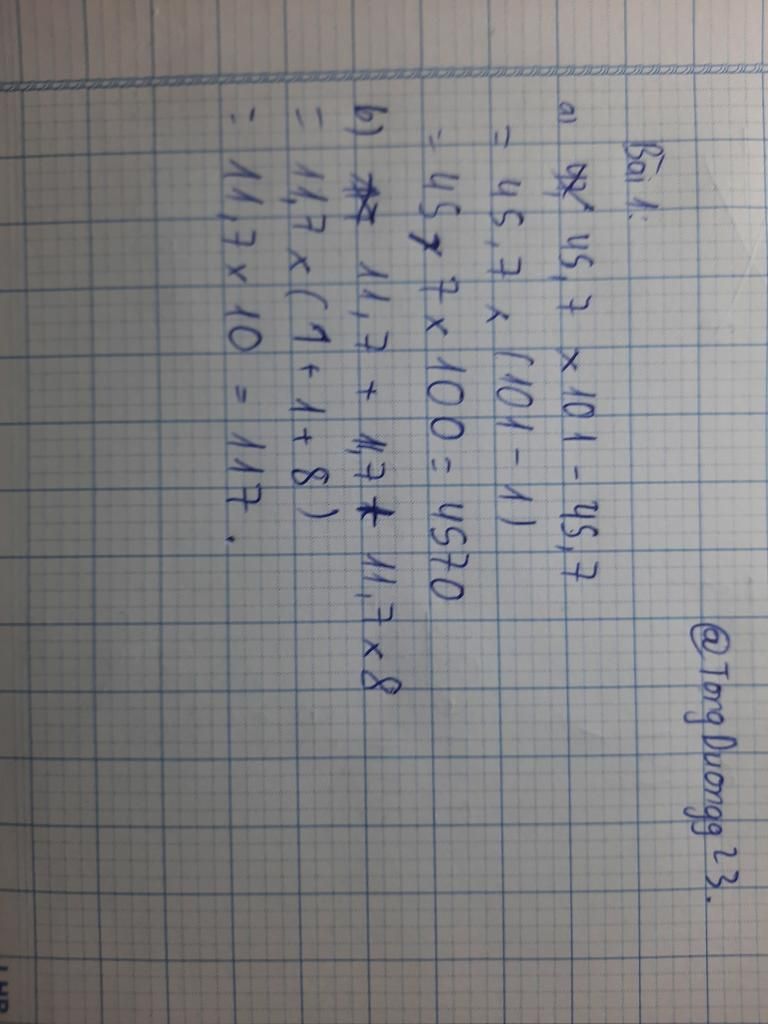 @TongDuongg23.
Bài 1:
a) 45,7 x 101 - 45,7
= 45,7 x (101 - 1)
= 45,7 x 100 = 4570
b) 11,7 + 1,7 + 11,7 x 8
= 11,7 x (1 + 1 + 8)
= 11,7 x 10 = 117.